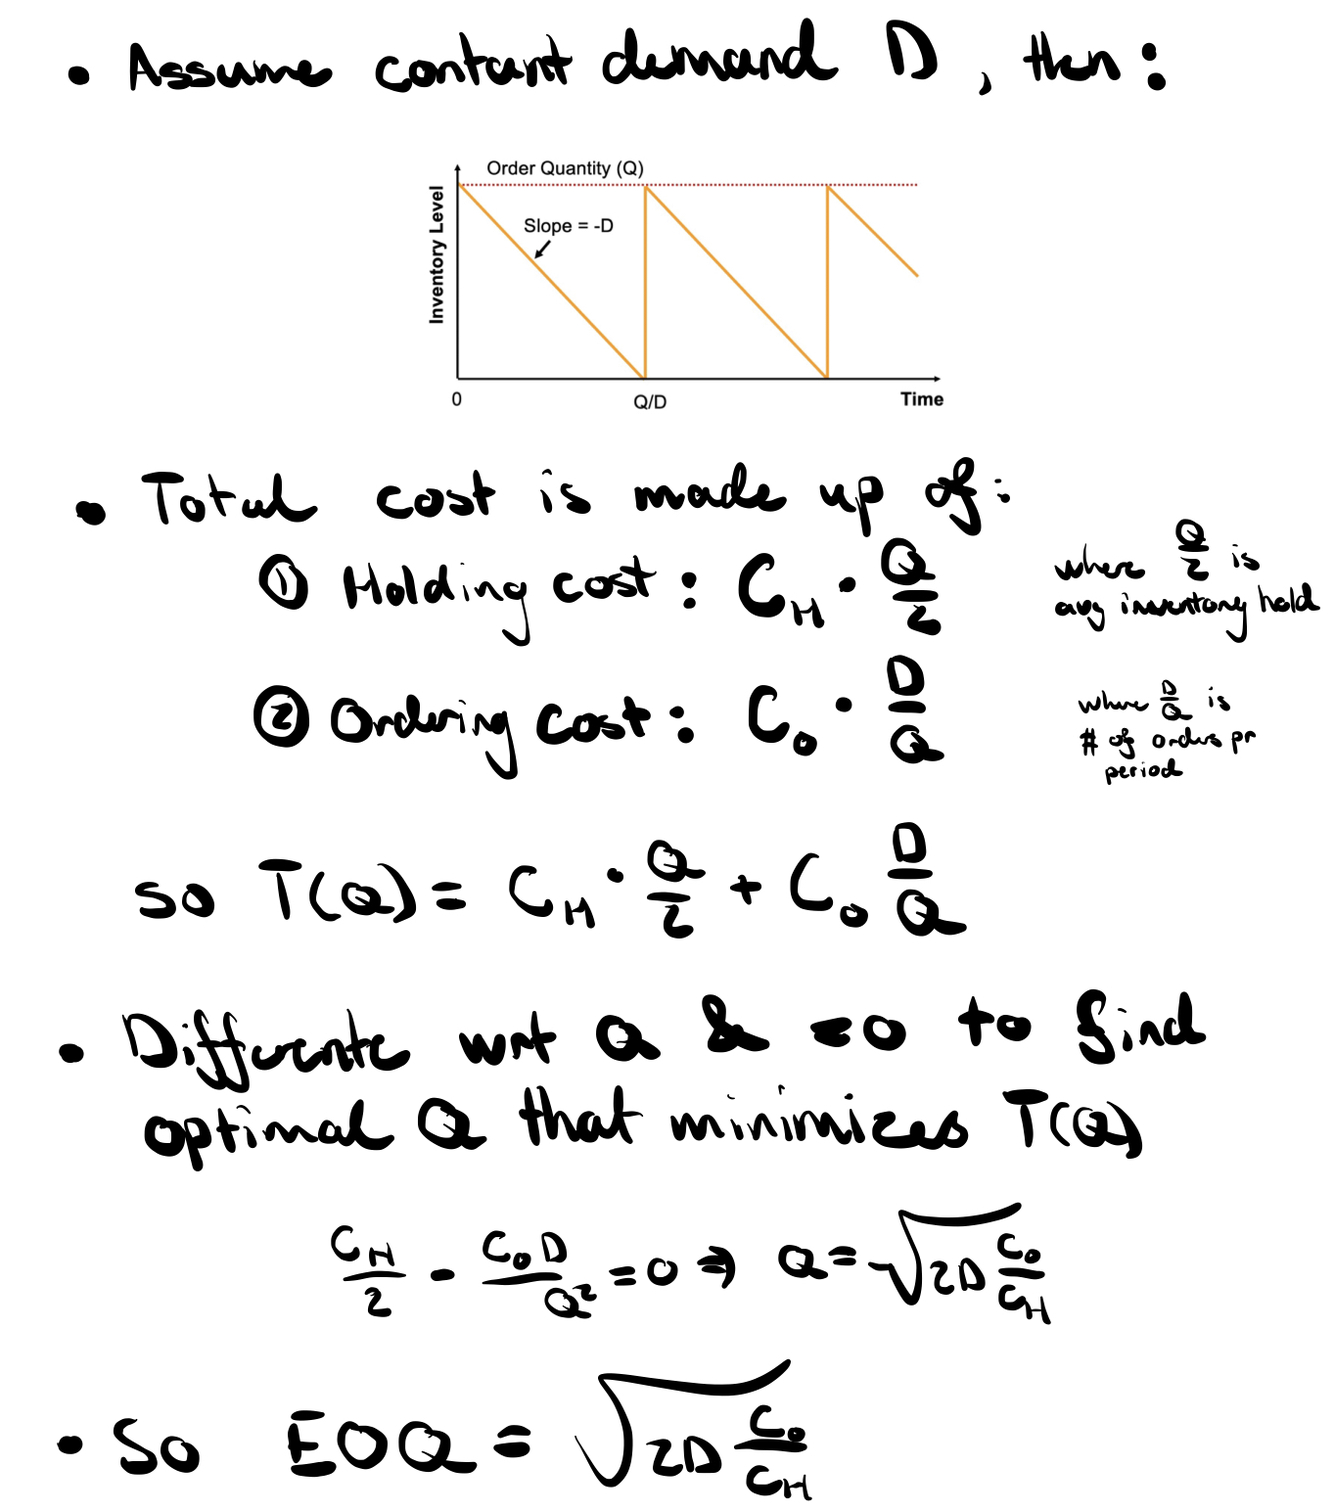 • Assume contant demand D, then:
Order Quantity (Q)
Slope = -D
Inventory Level
0
Q/D
Time
• Total cost is made up of:
① Holding cost: C_H · Q/2
where Q/2 is
avg inventory hold
② Ordering cost: C_o · D/Q
where D/Q is
# of orders pr
period
so T(Q) = C_H · Q/2 + C_o D/Q
• Differente wrt Q & =0 to find
optimal Q that minimizes T(Q)
C_H/2 - C_o D/Q² = 0 ⇒ Q = √(2D C_o/C_H)
• So EOQ = √(2D C_o/C_H)